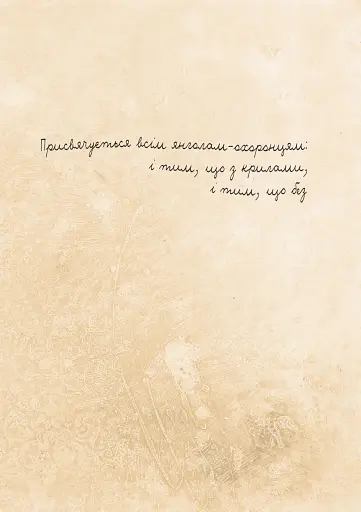 Присвячується всім янголам-охоронцям:
і тим, що з крилами,
і тим, що без